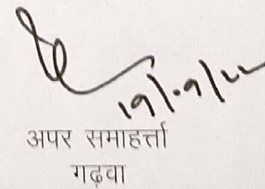 19/09/22
अपर समाहर्त्ता
गढ़वा